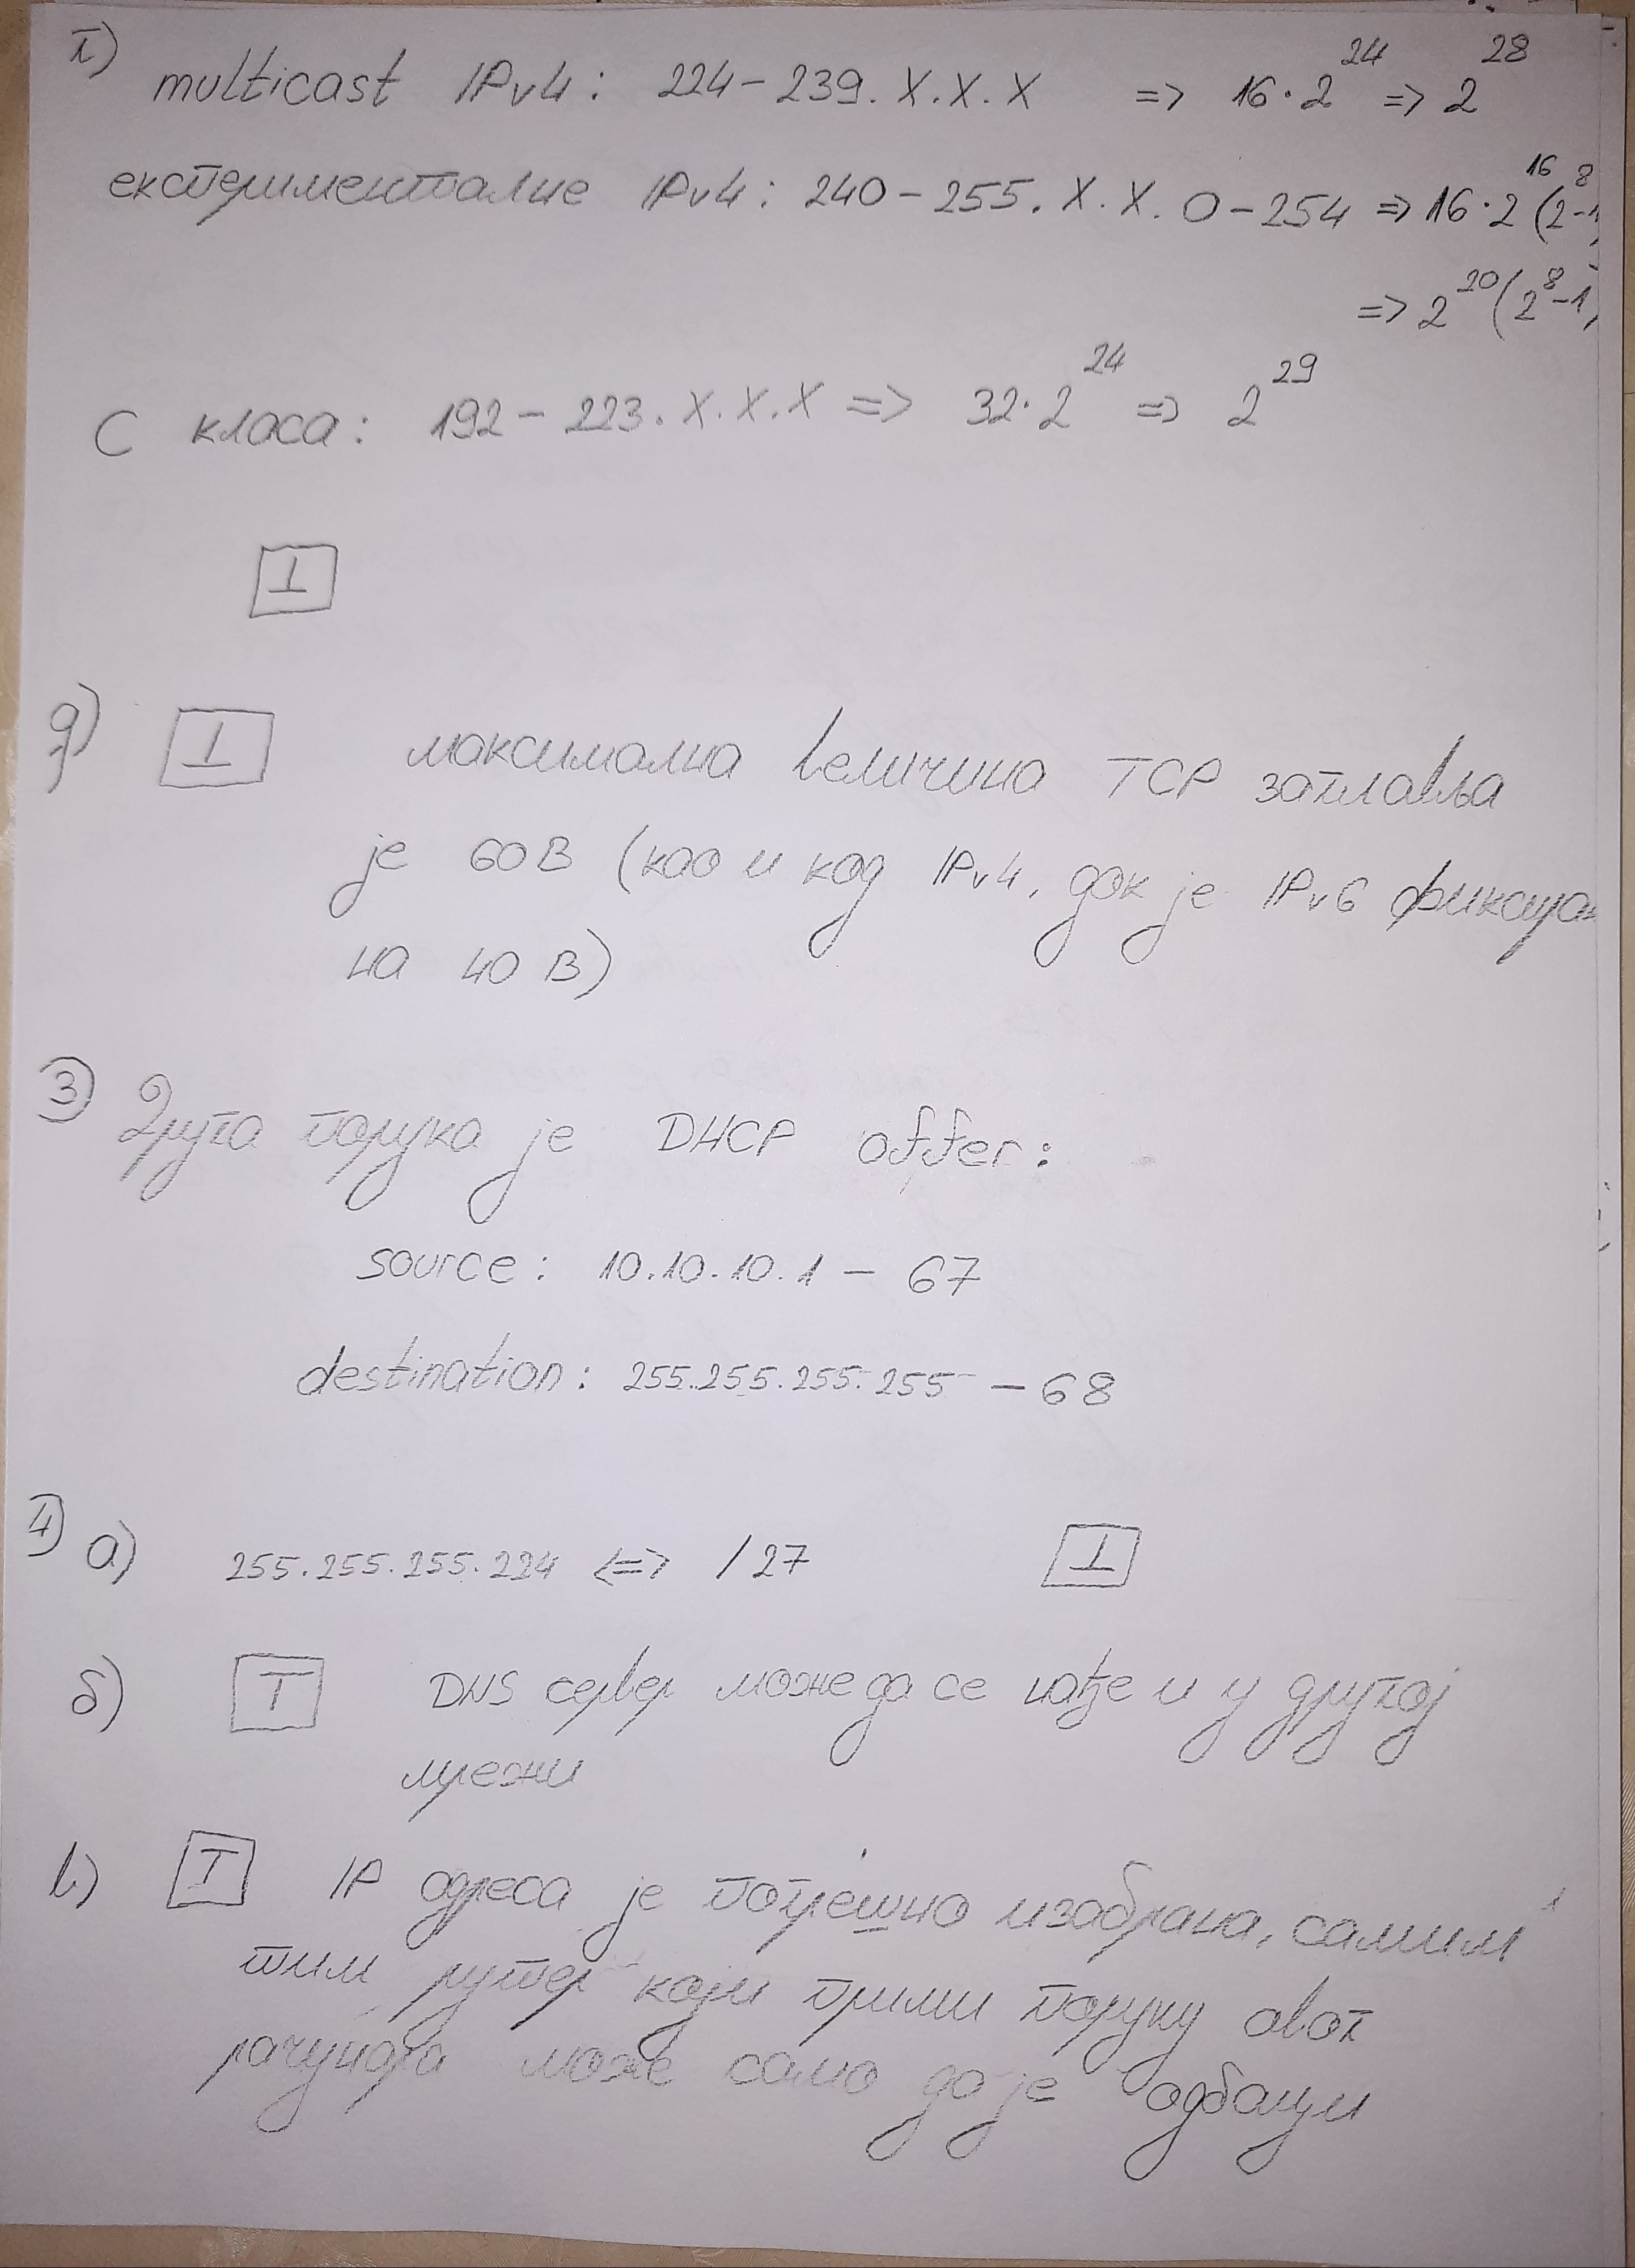 г) multicast IPv4: 224-239.X.X.X => 16·2^24 => 2^28
експерименталне IPv4: 240-255.X.X.0-254 => 16·2^16(2^8-1)
=> 2^20(2^8-1)
C класа: 192-223.X.X.X => 32·2^24 => 2^29
⊥
д) ⊥ максимална величина TCP заглавља
је 60B (као и код IPv4, док је IPv6 фиксиран
на 40B)
3) Друга порука је DHCP offer:
source: 10.10.10.1 - 67
destination: 255.255.255.255 - 68
4) а) 255.255.255.224 <=> /27 ⊥
б) T DNS сервер може да се нађе и у другој
мрежи
в) T IP адреса је погрешно изабрана, самим
тим рутер који прими поруку овог
рачунара може само да је одбаци